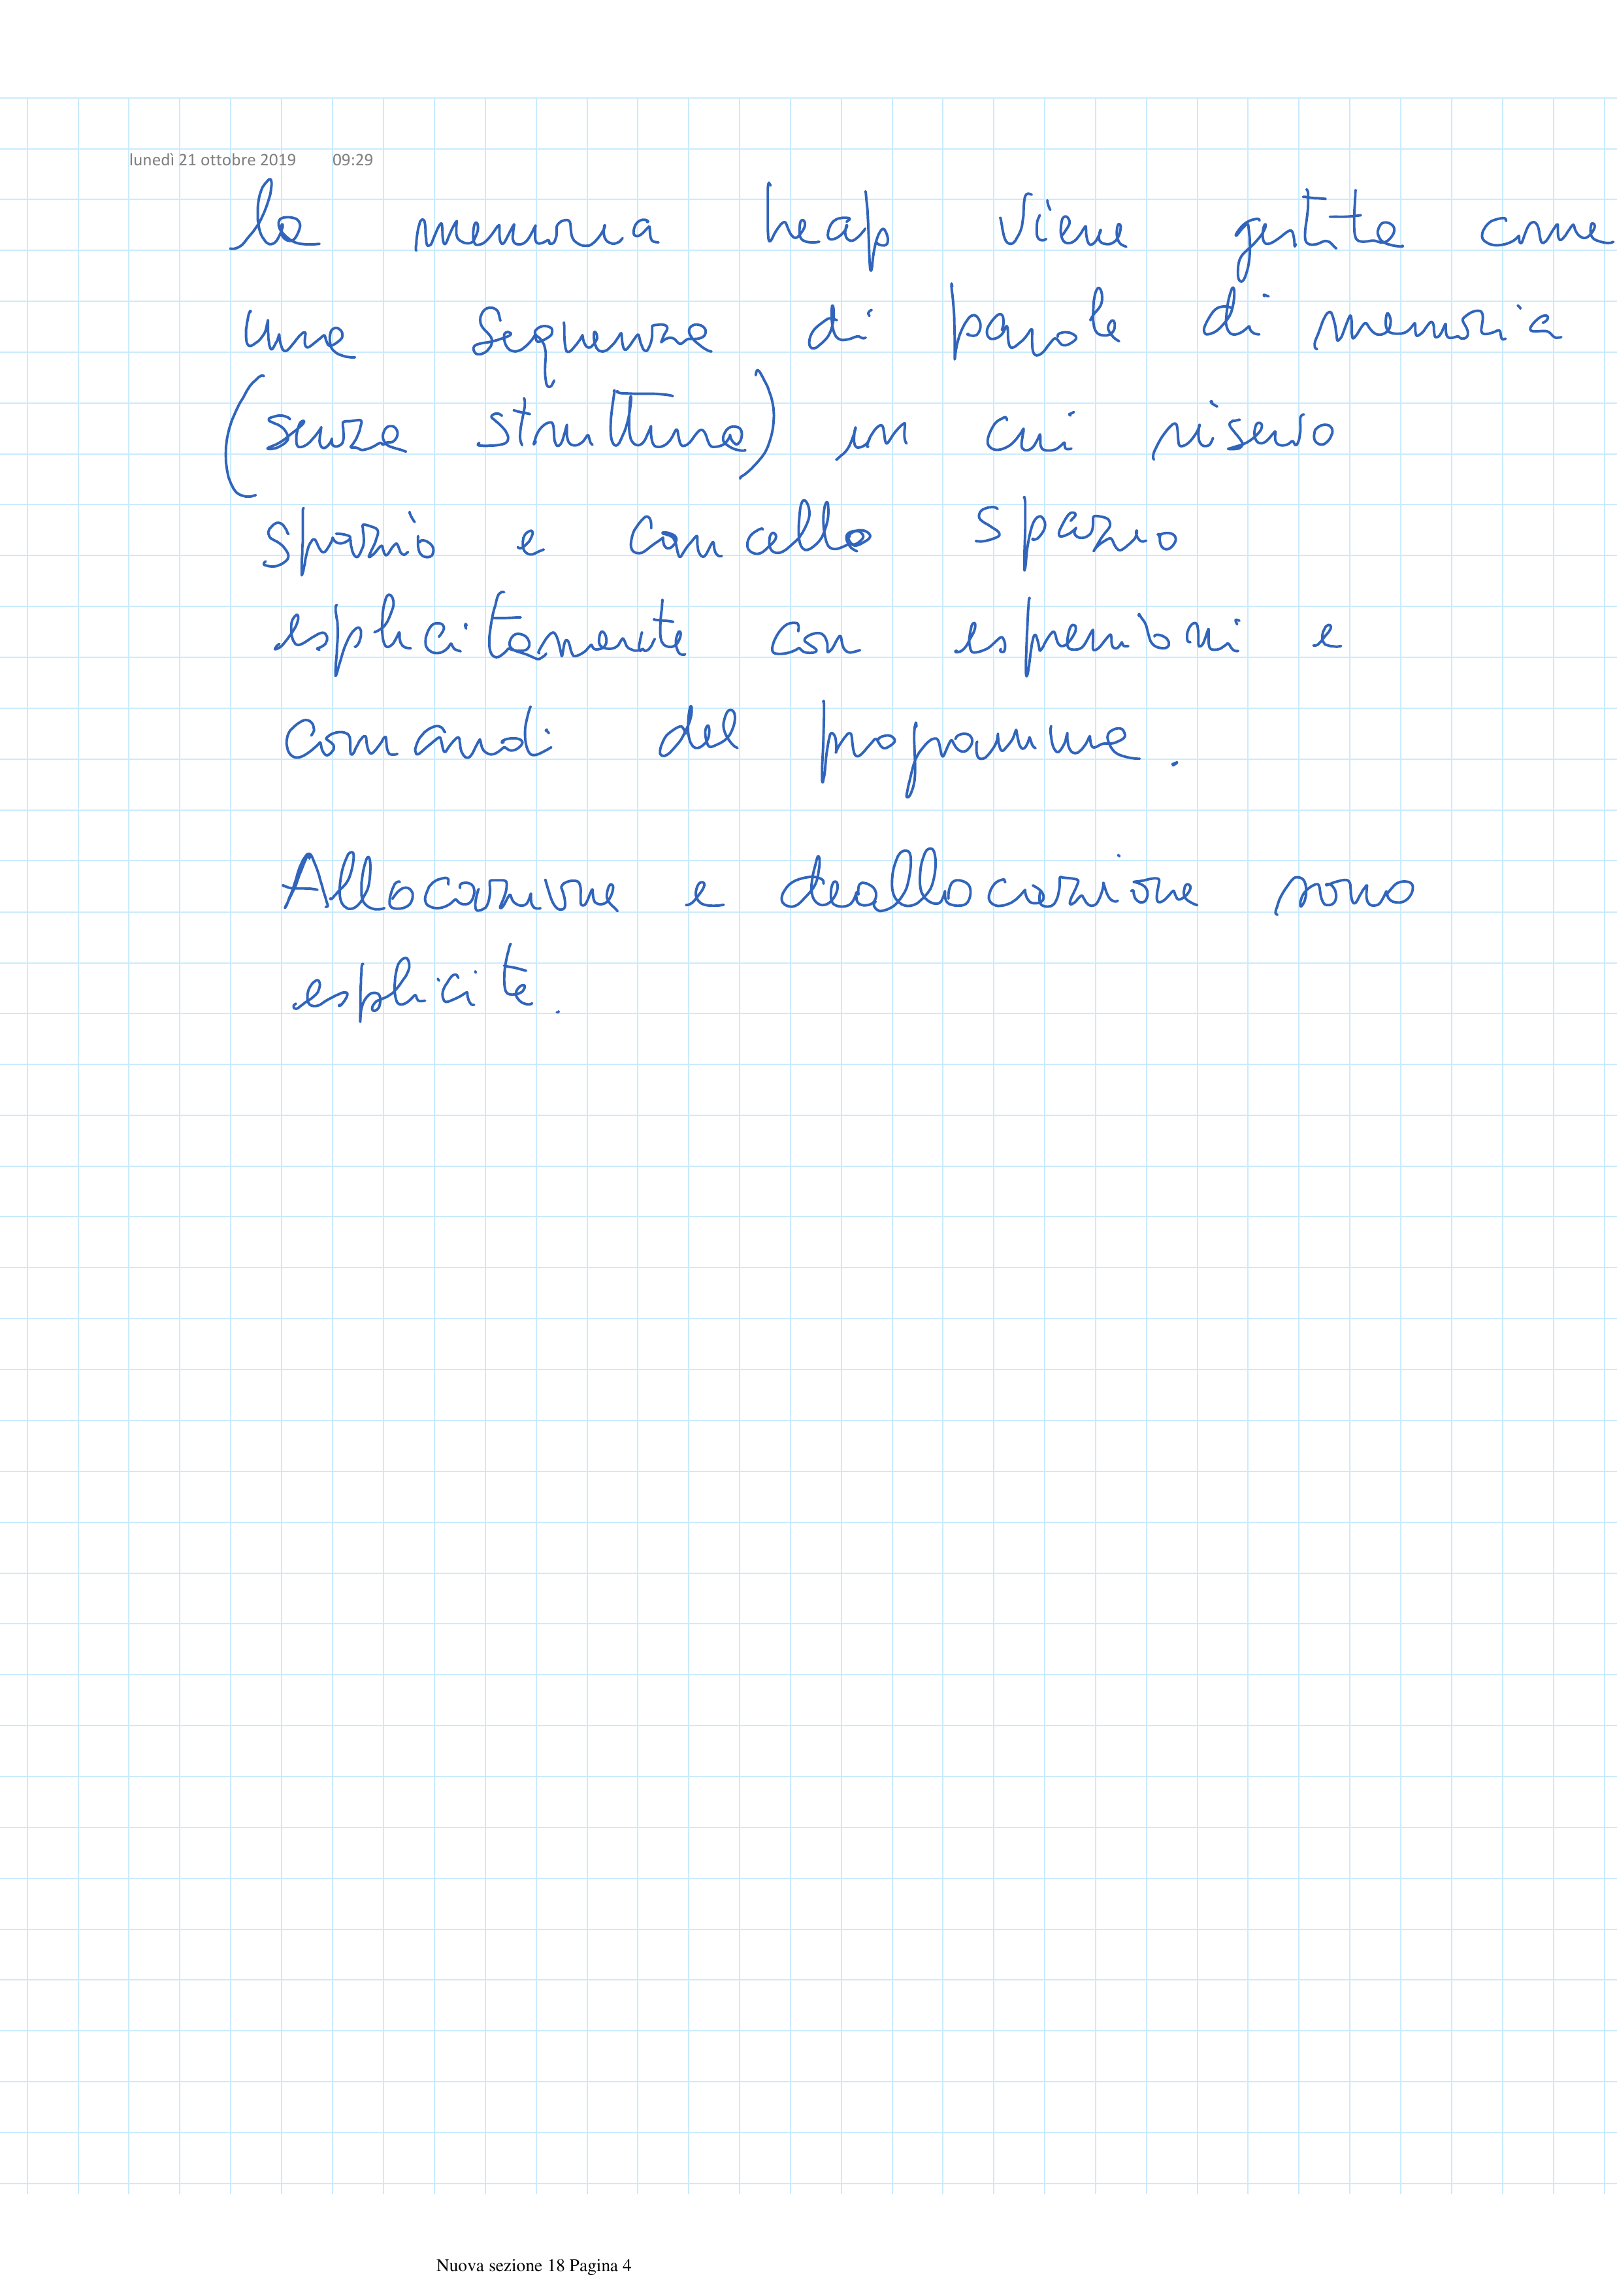 lunedì 21 ottobre 2019 09:29
la memoria heap viene gestita come
una sequenza di parole di memoria
(senza struttura) in cui riservo
spazio e cancello spazio
esplicitamente con espressioni e
comandi del programma.
Allocazione e deallocazione sono
esplicite.
Nuova sezione 18 Pagina 4